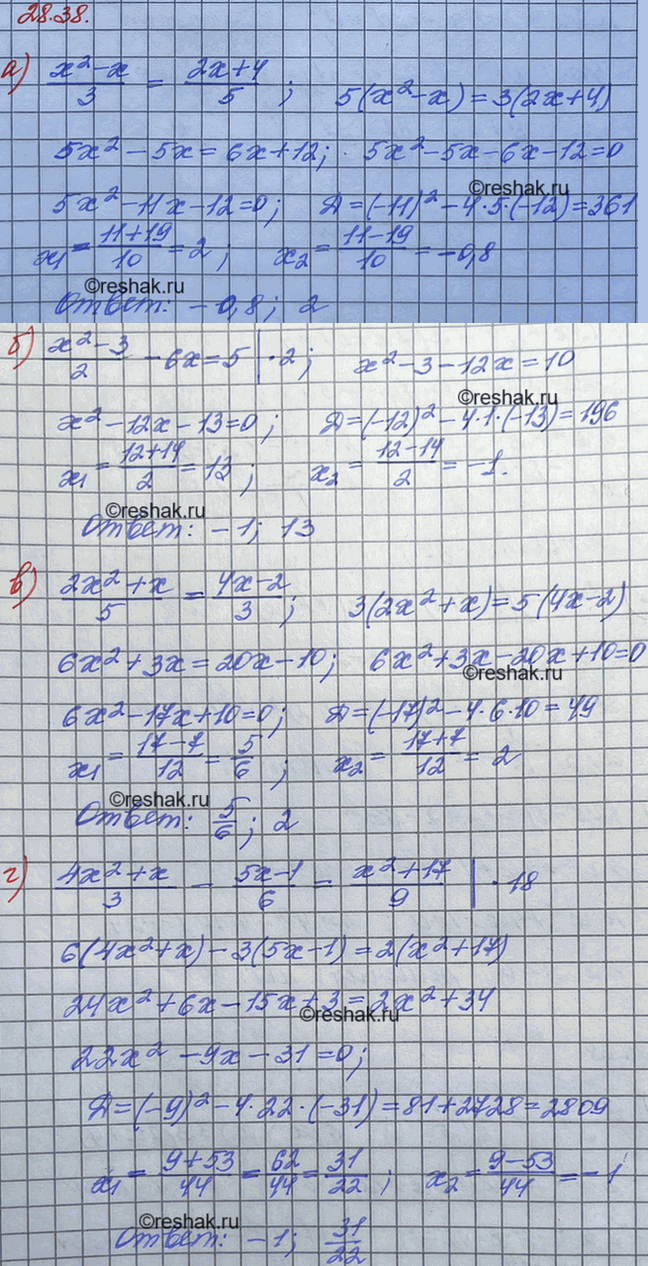 28.38.
а) (x²-x)/3 = (2x+4)/5; 5(x²-x)=3(2x+4)
5x²-5x=6x+12; 5x²-5x-6x-12=0
©reshak.ru
5x²-11x-12=0; Д=(-11)²-4·5·(-12)=361
x₁=(11+19)/10=2; x₂=(11-19)/10=-0,8
©reshak.ru
Ответ: -0,8; 2
б) (x²-3)/2 - 6x=5 |·2; x²-3-12x=10
©reshak.ru
x²-12x-13=0; Д=(-12)²-4·1·(-13)=196
x₁=(12+14)/2=13; x₂=(12-14)/2=-1.
©reshak.ru
Ответ: -1; 13
в) (2x²+x)/5 = (4x-2)/3; 3(2x²+x)=5(4x-2)
6x²+3x=20x-10; 6x²+3x-20x+10=0
©reshak.ru
6x²-17x+10=0; Д=(-17)²-4·6·10=49
x₁=(17-7)/12=5/6; x₂=(17+7)/12=2
©reshak.ru
Ответ: 5/6; 2
г) (4x²+x)/3 - (5x-1)/6 = (x²+17)/9 |·18
6(4x²+x)-3(5x-1)=2(x²+17)
24x²+6x-15x+3=2x²+34
©reshak.ru
22x²-9x-31=0;
Д=(-9)²-4·22·(-31)=81+2728=2809
x₁=(9+53)/44=62/44=31/22; x₂=(9-53)/44=-1
©reshak.ru
Ответ: -1; 31/22